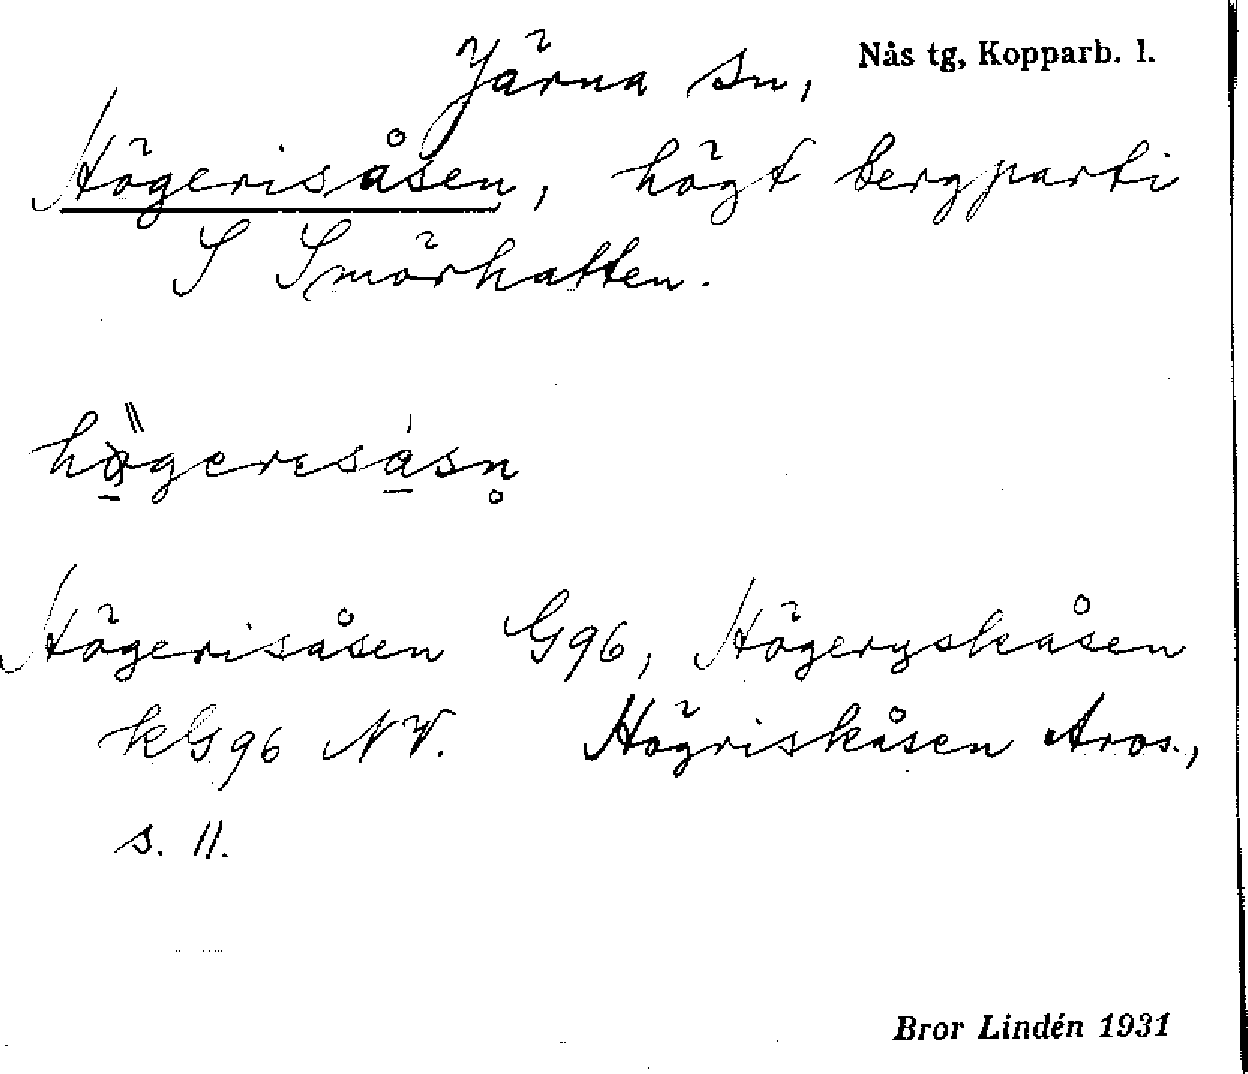 Järna sn, Nås tg, Kopparb. l.
Högerisåsen, högt bergparti
S Smörhatten.
Högerisåsen G96, Högeryskåsen
kG96 NV. Högriskåsen Aros.,
s. 11.
Bror Lindén 1931